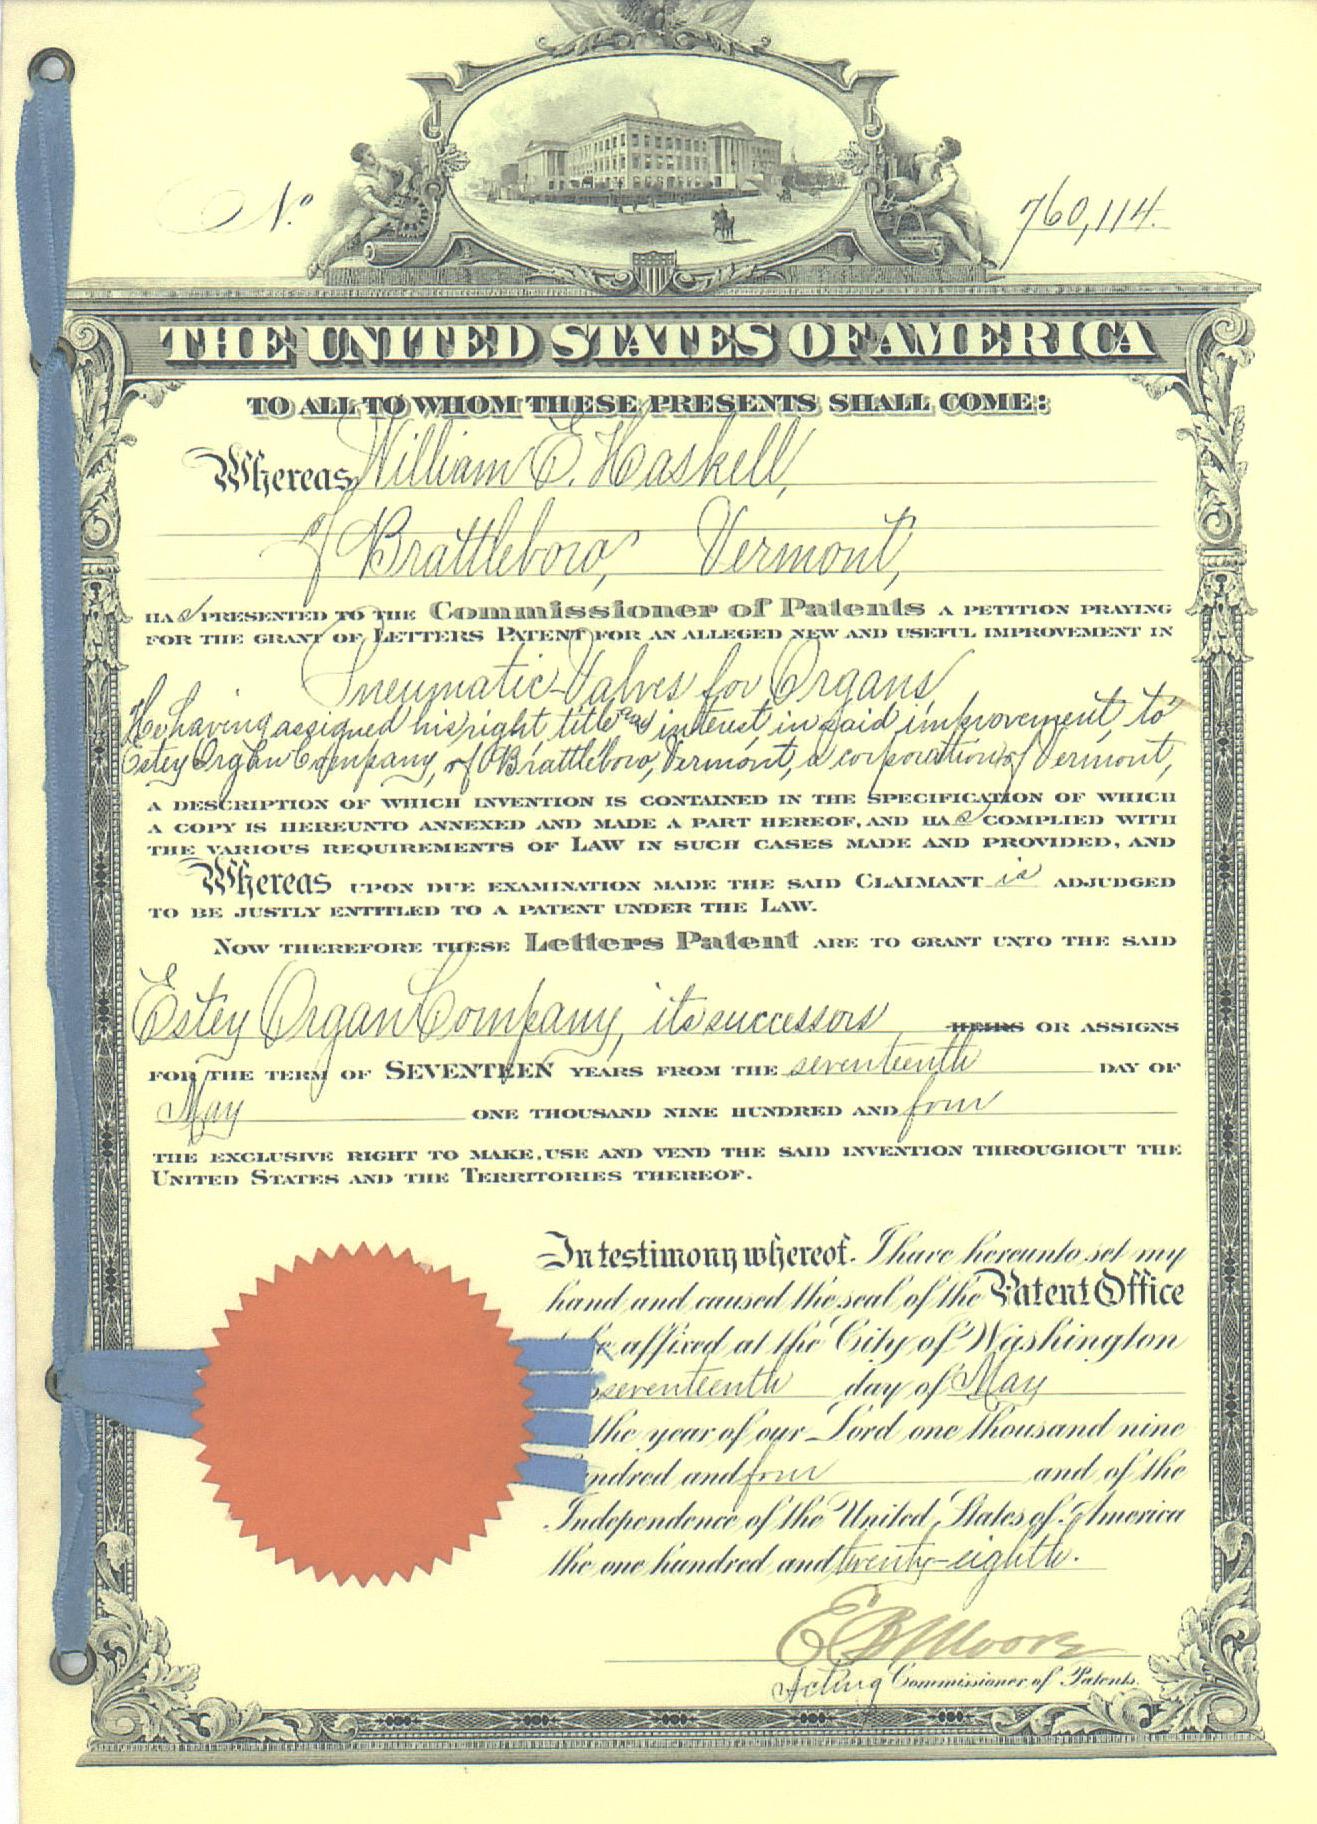 No. 760,114.
THE UNITED STATES OF AMERICA
TO ALL TO WHOM THESE PRESENTS SHALL COME:
Whereas William E. Haskell,
of Brattleboro, Vermont,
HAs PRESENTED TO THE Commissioner of Patents A PETITION PRAYING
FOR THE GRANT OF LETTERS PATENT FOR AN ALLEGED NEW AND USEFUL IMPROVEMENT IN
Pneumatic-Valves for Organs
He having assigned his right title and interest in said improvement, to
Estey Organ Company, of Brattleboro, Vermont, a corporation of Vermont,
A DESCRIPTION OF WHICH INVENTION IS CONTAINED IN THE SPECIFICATION OF WHICH
A COPY IS HEREUNTO ANNEXED AND MADE A PART HEREOF, AND HAs COMPLIED WITH
THE VARIOUS REQUIREMENTS OF LAW IN SUCH CASES MADE AND PROVIDED, AND
Whereas UPON DUE EXAMINATION MADE THE SAID CLAIMANT is ADJUDGED
TO BE JUSTLY ENTITLED TO A PATENT UNDER THE LAW.
NOW THEREFORE THESE Letters Patent ARE TO GRANT UNTO THE SAID
Estey Organ Company, its successors HEIRS OR ASSIGNS
FOR THE TERM OF SEVENTEEN YEARS FROM THE seventeenth DAY OF
May ONE THOUSAND NINE HUNDRED AND four
THE EXCLUSIVE RIGHT TO MAKE, USE AND VEND THE SAID INVENTION THROUGHOUT THE
UNITED STATES AND THE TERRITORIES THEREOF.
In testimony whereof. I have hereunto set my
hand and caused the seal of the Patent Office
be affixed at the City of Washington
seventeenth day of May
the year of our Lord one thousand nine
hundred and four and of the
Independence of the United States of America
the one hundred and twenty-eighth.
E B Moore
Acting Commissioner of Patents.